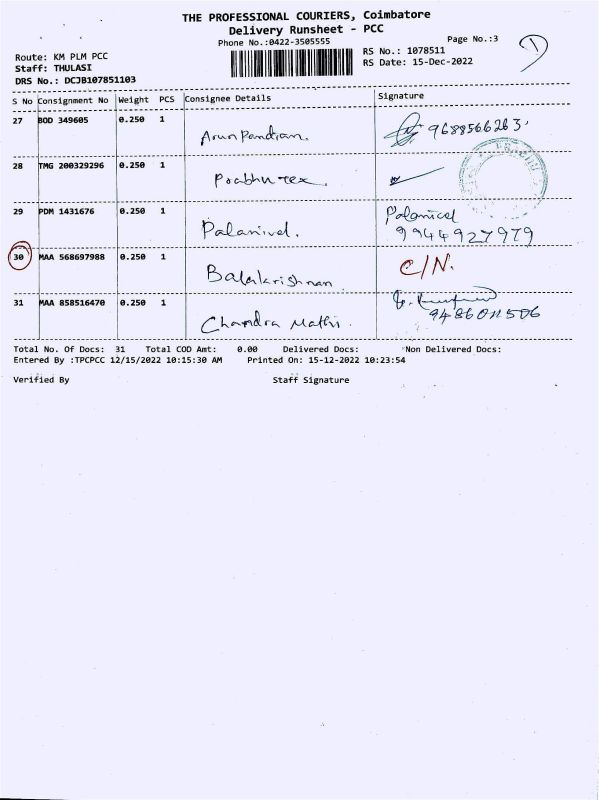 THE PROFESSIONAL COURIERS, Coimbatore
Delivery Runsheet - PCC
Phone No.:0422-3505555
Page No.:3
1
Route: KM PLM PCC
Staff: THULASI
DRS No.: DCJB107851103
RS No.: 1078511
RS Date: 15-Dec-2022
S No Consignment No Weight PCS Consignee Details Signature
27 BOD 349605 0.250 1 Arun Pandian. 9688566263.
28 TMG 200329296 0.250 1 Prabhu tex.
29 PDM 1431676 0.250 1 Palanivel. Palanivel
9944927979
30 MAA 568697988 0.250 1 Balakrishnan C/N.
31 MAA 858516470 0.250 1 Chandra Mathi. 9486011506
Total No. Of Docs: 31 Total COD Amt: 0.00 Delivered Docs: Non Delivered Docs:
Entered By :TPCPCC 12/15/2022 10:15:30 AM Printed On: 15-12-2022 10:23:54
Verified By Staff Signature